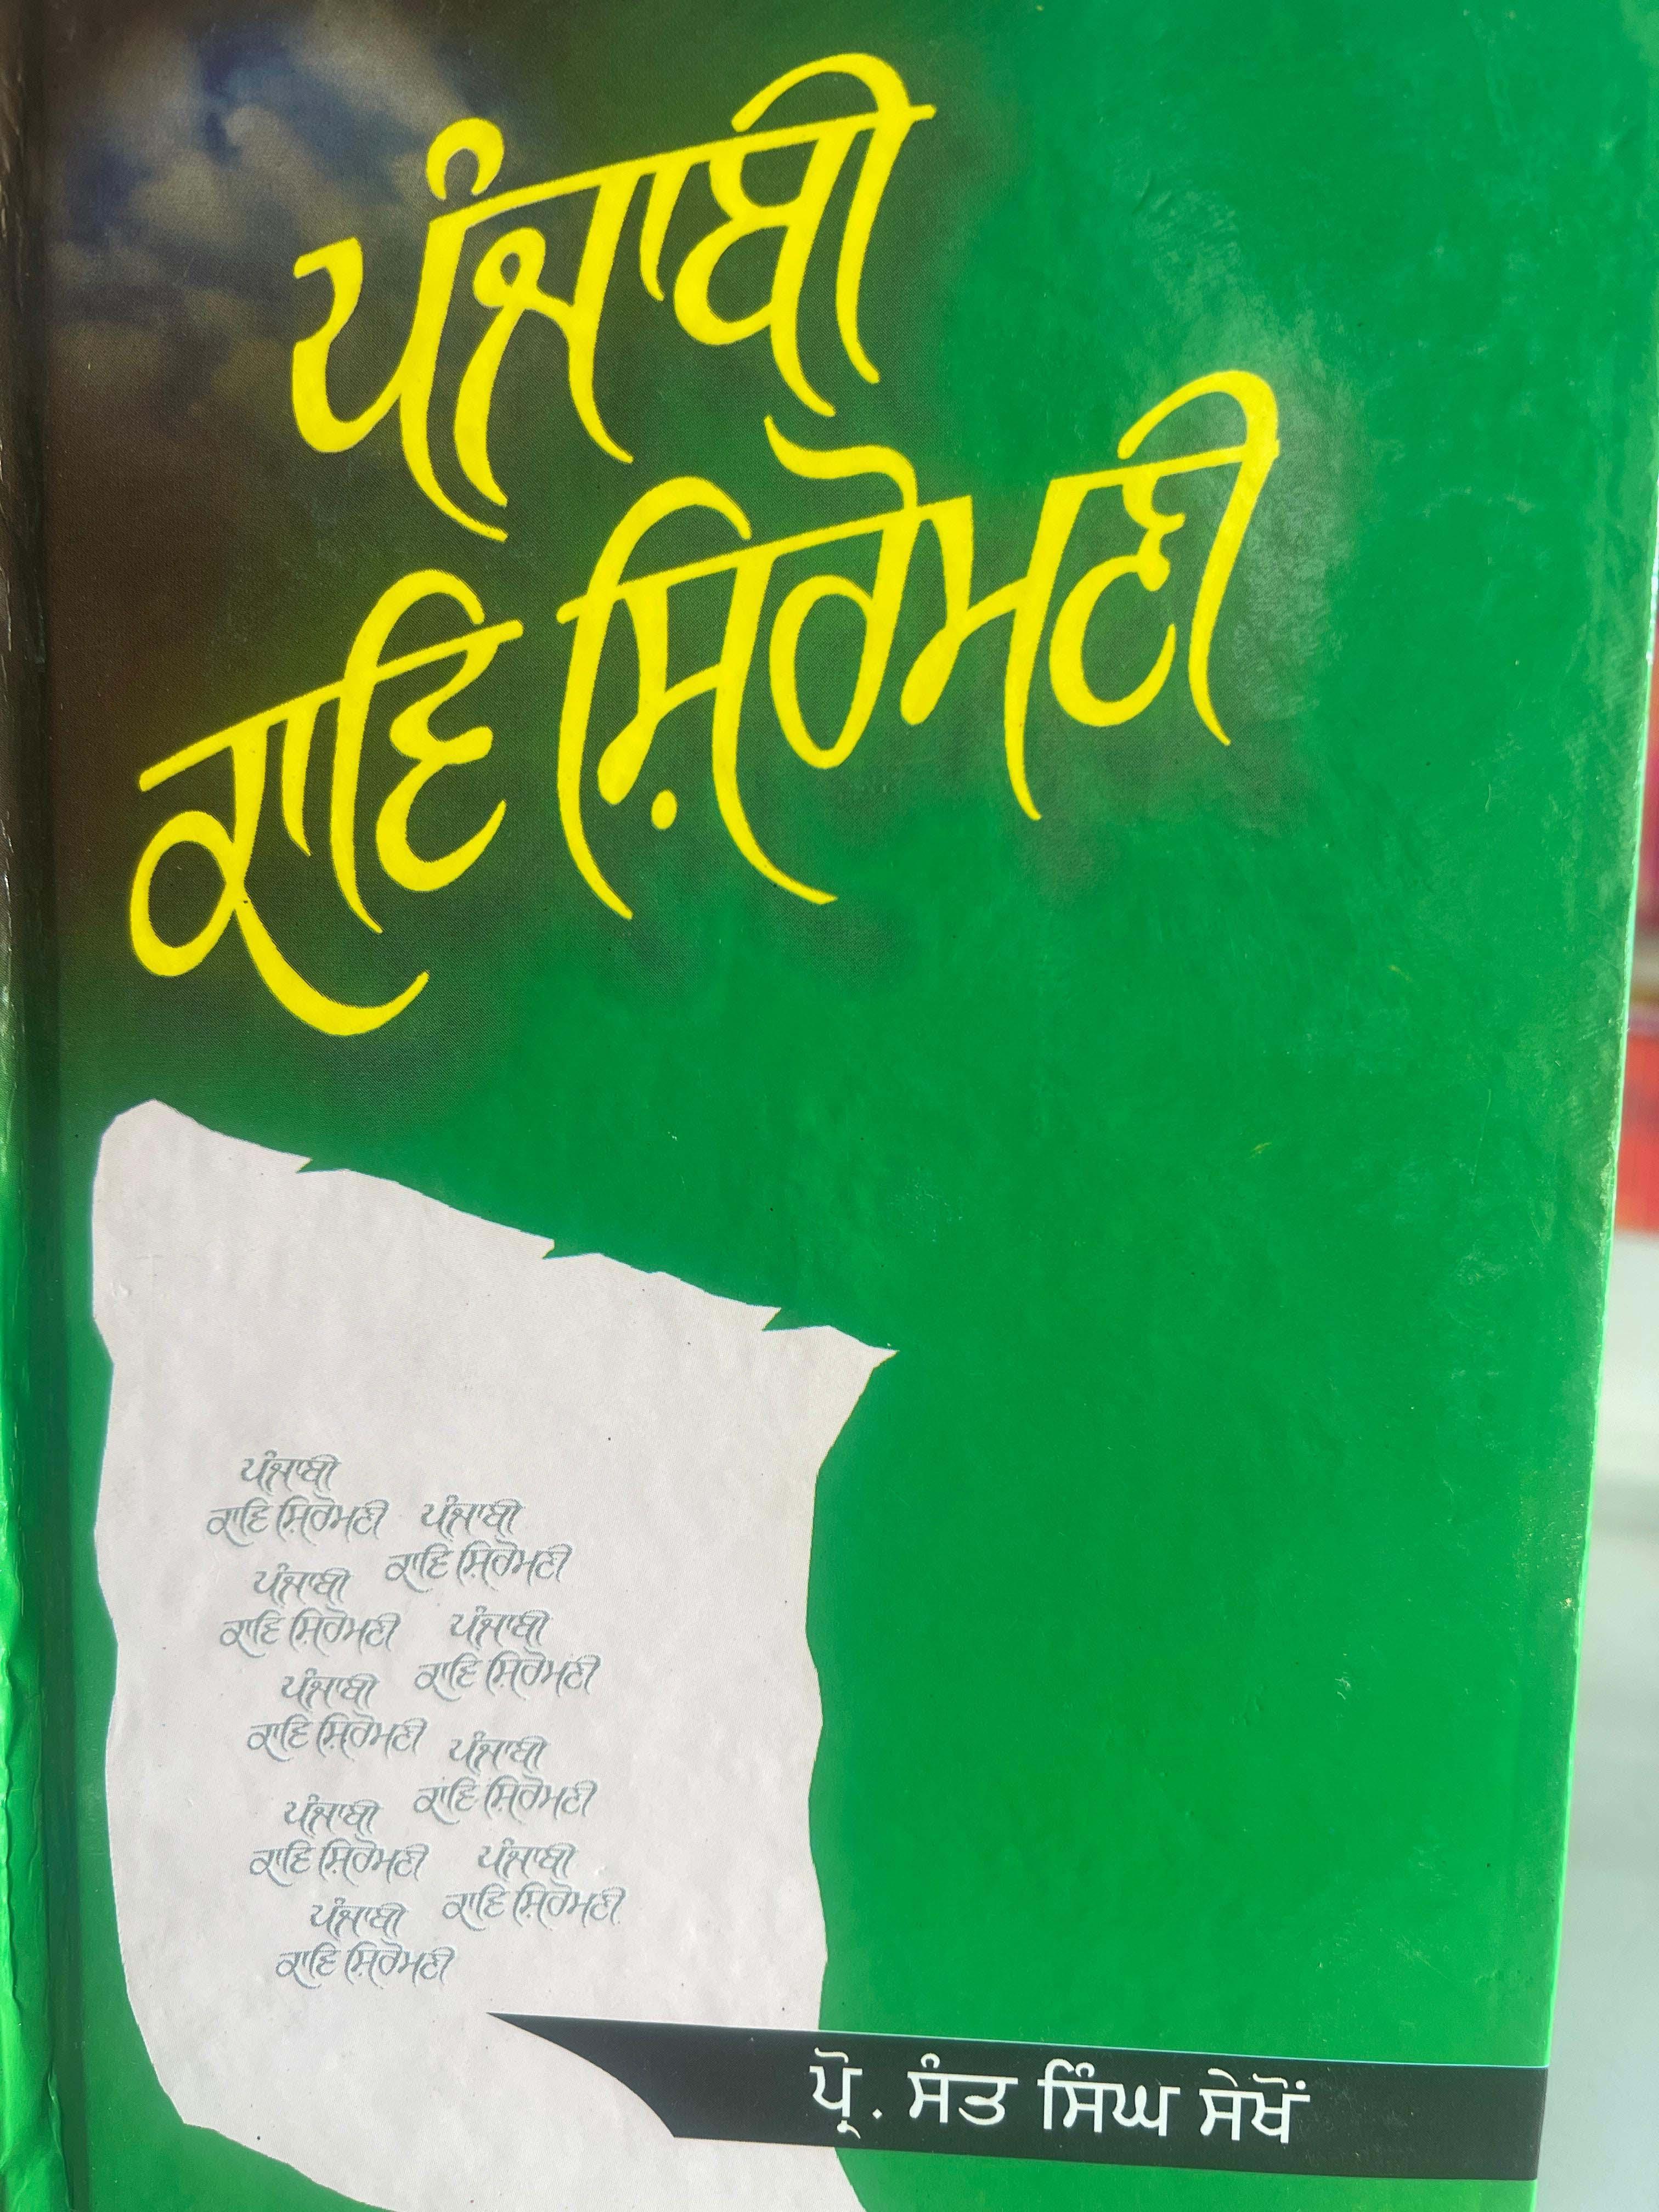 ਪੰਜਾਬੀ
ਕਾਵਿ ਸ਼ਿਰੋਮਣੀ
ਪੰਜਾਬੀ
ਕਾਵਿ ਸ਼ਿਰੋਮਣੀ
ਪੰਜਾਬੀ
ਕਾਵਿ ਸ਼ਿਰੋਮਣੀ
ਪੰਜਾਬੀ
ਕਾਵਿ ਸ਼ਿਰੋਮਣੀ
ਪੰਜਾਬੀ
ਕਾਵਿ ਸ਼ਿਰੋਮਣੀ
ਪੰਜਾਬੀ
ਕਾਵਿ ਸ਼ਿਰੋਮਣੀ
ਪੰਜਾਬੀ
ਕਾਵਿ ਸ਼ਿਰੋਮਣੀ
ਪੰਜਾਬੀ
ਕਾਵਿ ਸ਼ਿਰੋਮਣੀ
ਪੰਜਾਬੀ
ਕਾਵਿ ਸ਼ਿਰੋਮਣੀ
ਪੰਜਾਬੀ
ਕਾਵਿ ਸ਼ਿਰੋਮਣੀ
ਪ੍ਰੋ. ਸੰਤ ਸਿੰਘ ਸੇਖੋਂ